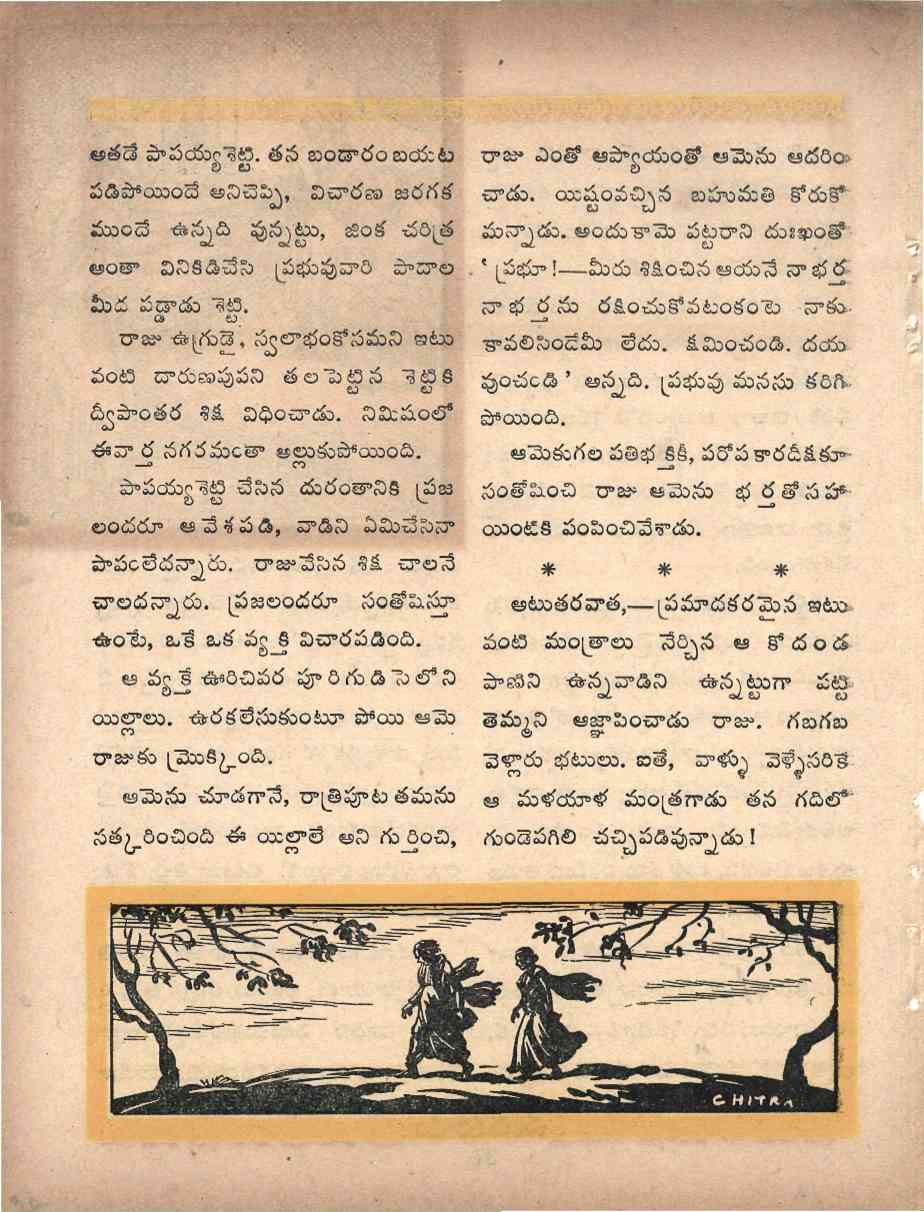 అతడే పాపయ్యశెట్టి. తన బండారం బయట
పడిపోయిందే అనిచెప్పి, విచారణ జరగక
ముందే ఉన్నది వున్నట్టు, జింక చరిత్ర
అంతా వినికిడిచేసి ప్రభువువారి పాదాల
మీద పడ్డాడు శెట్టి.
రాజు ఉగ్రుడై, స్వలాభంకోసమని ఇటు
వంటి దారుణపుపని తలపెట్టిన శెట్టికి
ద్వీపాంతర శిక్ష విధించాడు. నిమిషంలో
ఈవార్త నగరమంతా అల్లుకుపోయింది.
పాపయ్యశెట్టి చేసిన దురంతానికి ప్రజ
లందరూ ఆవేశపడి, వాడిని ఏమిచేసినా
పాపంలేదన్నారు. రాజువేసిన శిక్ష చాలనే
చాలదన్నారు. ప్రజలందరూ సంతోషిస్తూ
ఉంటే, ఒకే ఒక వ్యక్తి విచారపడింది.
ఆ వ్యక్తే ఊరిచివర పూరిగుడిసెలోని
యిల్లాలు. ఉరకలేసుకుంటూ పోయి ఆమె
రాజుకు మ్రొక్కింది.
ఆమెను చూడగానే, రాత్రిపూట తమను
సత్కరించింది ఈ యిల్లాలే అని గుర్తించి,
రాజు ఎంతో ఆప్యాయంతో ఆమెను ఆదరిం
చాడు. యిష్టంవచ్చిన బహుమతి కోరుకో
మన్నాడు. అందుకామె పట్టరాని దుఃఖంతో
‘ప్రభూ!—మీరు శిక్షించిన ఆయనే నాభర్త
నాభర్తను రక్షించుకోవటంకంటె నాకు
కావలిసిందేమీ లేదు. క్షమించండి. దయ
వుంచండి’ అన్నది. ప్రభువు మనసు కరిగి
పోయింది.
ఆమెకుగల పతిభక్తికీ, పరోపకారదీక్షకూ
సంతోషించి రాజు ఆమెను భర్తతోసహా
యింటికి పంపించివేశాడు.
* * *
అటుతరవాత,—ప్రమాదకరమైన ఇటు
వంటి మంత్రాలు నేర్చిన ఆ కోదండ
పాణిని ఉన్నవాడిని ఉన్నట్టుగా పట్టి
తెమ్మని ఆజ్ఞాపించాడు రాజు. గబగబ
వెళ్లారు భటులు. ఐతే, వాళ్ళు వెళ్ళేసరికే
ఆ మళయాళ మంత్రగాడు తన గదిలో
గుండెపగిలి చచ్చిపడివున్నాడు!
CHITRA